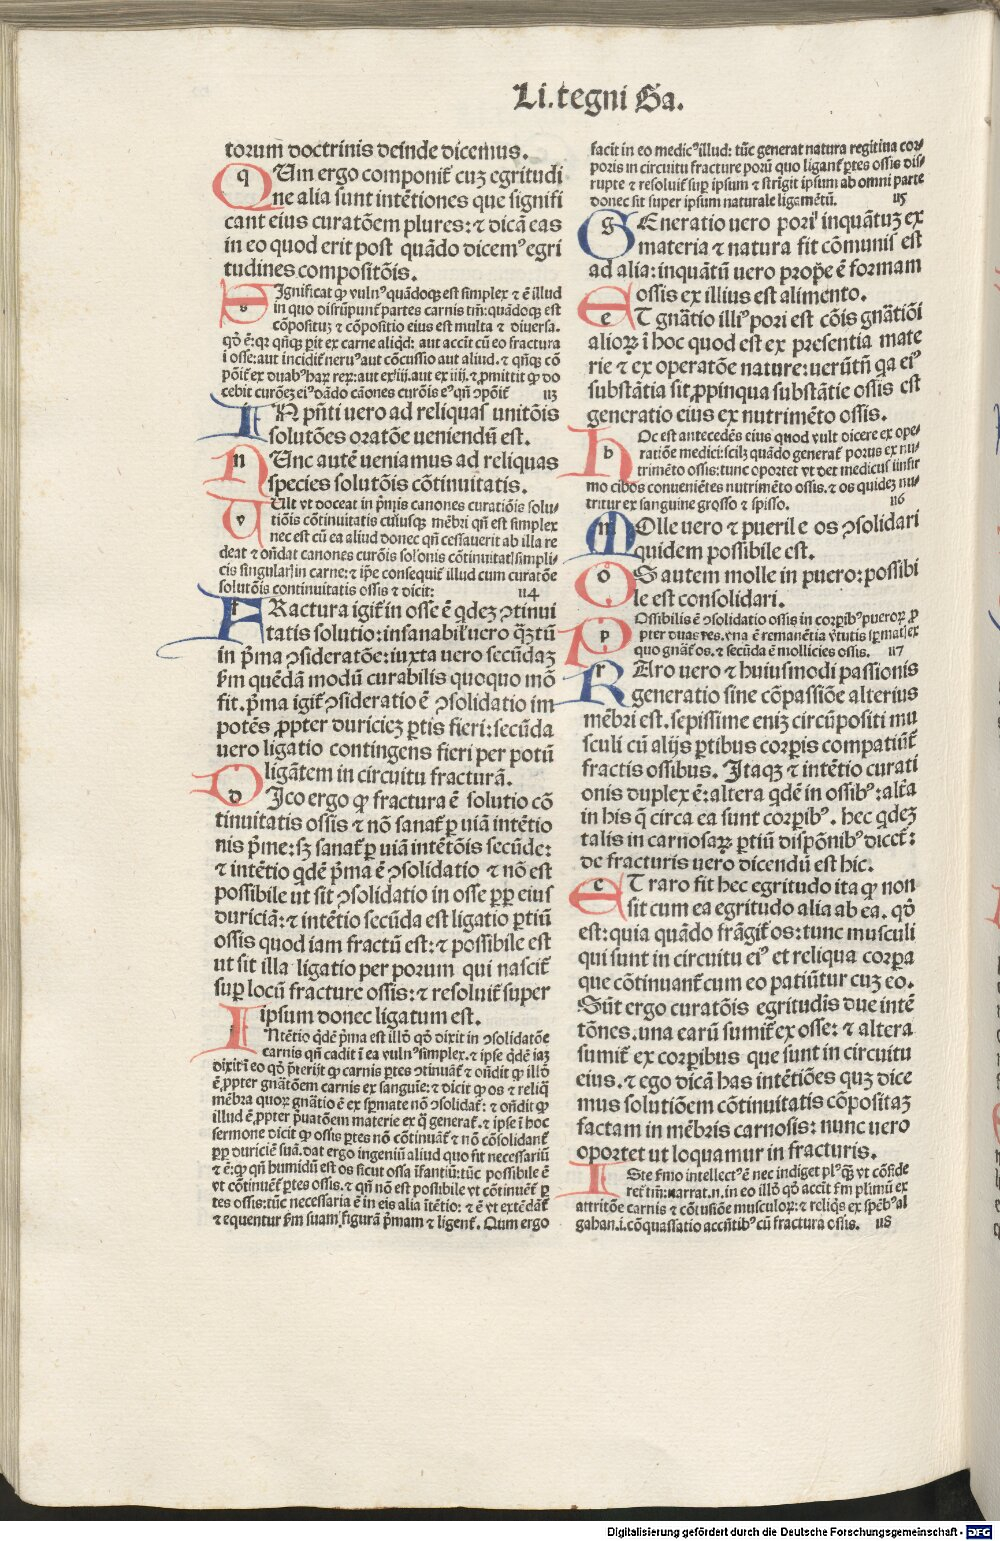 Li.tegni Ga.
torum doctrinis deinde dicemus.
QUm ergo componit̃ cuʒ egritudi
ne alia sunt intẽtiones que signifi
cant eius curatõem plures: ⁊ dicã eas
in eo quod erit post quãdo dicemꝰ egri
tudines compositõis.
SIgnificat ꝙ vulnꝰ quãdoqꝫ est simplex ⁊ ẽ illud
in quo disrũpunt̃ partes carnis tm̃: quãdoqꝫ est
cõposituʒ ⁊ cõpositio eius est multa ⁊ diuersa.
qd̃ ẽ: qꝛ qñqꝫ ꝑit ex carne aliqd̃: aut accit cũ eo fractura
i osse: aut incidit̃ neruꝰ aut cõcussio aut aliud. ⁊ qñqꝫ cõ
põit̃ ex duabꝰ haꝝ reꝝ: aut ex iij. aut ex iiij. ⁊ ꝓmittit ꝙ do
cebit curõeʒ eiꝰ dãdo cãones curõis eꝰ qñ ꝯpõit̃ 113
IN pñti uero ad reliquas unitõis
solutões oratõe ueniendũ est.
NUnc autẽ ueniamus ad reliquas
species solutõis cõtinuitatis.
VUlt vt doceat in p̃mis canones curatiõis solu-
tiõis cõtinuitatis cuiusqꝫ mẽbri qñ est simplex
nec est cũ ea aliud donec qñ cessauerit ab illa re
deat ⁊ oñdat canones curõis solõnis cõtinuitat̃ simpli-
cis singulari in carne: ⁊ ip̃e consequit̃ illud cum curatõe
solutõis continuitatis ossis ⁊ dicit: 114
FRactura igit̃ in osse ẽ qdeʒ ꝯtinui
tatis solutio: insanabilꝰ uero q̃ʒtũ
in p̃ma ꝯsideratõe: iuxta uero secũdaʒ
fm quẽdã modũ curabilis quoquo mõ
fit. p̃ma igit̃ ꝯsideratio ẽ ꝯsolidatio im
potẽs ꝓpter duricieʒ ꝑtis fieri: secũda
uero ligatio contingens fieri per potũ
ligãtem in circuitu fracturã.
DIco ergo ꝙ fractura ẽ solutio cõ
tinuitatis ossis ⁊ nõ sanat̃ ꝑ uiã intẽtio
nis p̃me: sʒ sanat̃ ꝑ uiã intẽtõis secũde:
⁊ intẽtio qdẽ p̃ma ẽ ꝯsolidatio ⁊ nõ est
possibile ut sit ꝯsolidatio in osse ꝓp̃ eius
duriciã: ⁊ intẽtio secũda est ligatio ꝑtiũ
ossis quod iam fractũ est: ⁊ possibile est
ut sit illa ligatio per porum qui nascit̃
suꝑ locũ fracture ossis: ⁊ resoluit̃ super
ipsum donec ligatum est.
INtẽtio qdẽ p̃ma est illõ qd̃ dixit in ꝯsolidatõe
carnis qñ cadit ĩ ea vulnꝰ simplex. ⁊ ipse qdẽ iaʒ
dixit ĩ eo qd̃ p̃terijt ꝙ carnis ꝑtes ꝯtinuãt̃ ⁊ oñdit ꝙ illõ
ẽ ꝓpter gnatõem carnis ex sanguĩe: ⁊ dicit ꝙ os ⁊ reliq̃
mẽbra quoꝝ gnãtio ẽ ex sꝑmate nõ ꝯsolidat̃: ⁊ oñdit ꝙ
illud ẽ ꝓpter p̃uatõem materie ex q̃ generat̃. ⁊ ipse ĩ hoc
sermone dicit ꝙ ossis ꝑtes nõ cõtinuãt̃ ⁊ nõ cõsolidant̃
ꝓp̃ duriciẽ suã. dat ergo ingeniũ aliud quo fit necessariũ
⁊ ẽ: ꝙ qñ humidũ est os sicut ossa ĩfantiũ: tũc possibile ẽ
vt cõtinuẽt̃ ꝑtes ossis. ⁊ qñ nõ est possibile vt cõtinuẽt̃ ꝑ
tes ossis: tũc necessaria ẽ in eis alia ĩtẽtio: ⁊ ẽ vt extẽdãt̃
⁊ equentur fm suam figurã p̃mam ⁊ ligent̃. Qum ergo
facit in eo medicꝰ illud: tũc generat natura regitiua cor-
poris in circuitu fracture porũ quo ligant̃ ꝑtes ossis dis-
rupte ⁊ resoluit̃ suꝑ ipsum ⁊ strĩgit ipsum ab omni parte
donec sit super ipsum naturale ligamẽtũ. 115
GEneratio uero pori inquãtuʒ ex
materia ⁊ natura fit cõmunis est
ad alia: inquãtũ uero prop̃e ẽ formam
ossis ex illius est alimento.
ET gnãtio illiꝰ pori est cõis gnãtiõi
alioꝝ ĩ hoc quod est ex presentia mate
rie ⁊ ex operatõe nature: uerũtñ qa eiꝰ
substãtia sit ꝓpinqua substãtie ossis est
generatio eius ex nutrimẽto ossis.
HOc est antecedẽs eius quod vult dicere ex ope-
ratiõe medici: scilʒ quãdo generat̃ porus ex nu-
trimẽto ossis: tunc oportet vt det medicus infir
mo cibos conueniẽtes nutrimẽto ossis. ⁊ os quideʒ nu-
tritur ex sanguine grosso ⁊ spisso. 116
MOlle uero ⁊ puerile os ꝯsolidari
quidem possibile est.
OS autem molle in puero: possibi
le est consolidari.
POssibilis ẽ ꝯsolidatio ossis in corꝑibꝰ pueroꝝ ꝓ
pter duas res. vna ẽ remanẽtia v̓tutis sꝑmat̃ ex
quo gnãt̃ os. ⁊ secũda ẽ mollicies ossis. 117
RAro uero ⁊ huiusmodi passionis
generatio sine cõpassiõe alterius
mẽbri est. sepissime eniʒ circũpositi mu
sculi cũ alijs ꝑtibus corꝑis compatiũt̃
fractis ossibus. Itaqꝫ ⁊ intẽtio curati
onis duplex ẽ: altera qdẽ in ossibꝰ: alt̃a
in his q̃ circa ea sunt corꝑibꝰ. hec qdeʒ
talis in carnosaꝝ ꝑtiũ dispõnibꝰ dicet̃:
de fracturis uero dicendũ est hic.
ET raro fit hec egritudo ita ꝙ non
sit cum ea egritudo alia ab ea. qd̃
est: quia quãdo frãgit̃ os: tunc musculi
qui sunt in circuitu eiꝰ et reliqua corꝑa
que cõtinuant̃ cum eo patiũtur cuʒ eo.
Sũt ergo curatõis egritudis due intẽ
tõnes. una earũ sumit̃ ex osse: ⁊ altera
sumit̃ ex corꝑibus que sunt in circuitu
eius. ⁊ ego dicã has intẽtiões quʒ dice
mus solutiõem cõtinuitatis cõpositaʒ
factam in mẽbris carnosis: nunc uero
oportet ut loquamur in fracturis.
ISte fmo intellectꝰ ẽ nec indiget plꝰ q̃ʒ vt cõside
ret̃ tm̃: narrat. n. in eo illõ qd̃ accit̃ fm plimũ ex
attritõe carnis ⁊ cõtusiõe musculoꝝ: ⁊ reliq̃s ex spẽbꝰ al
gaban. i. cõquassatio accñtibꝰ cũ fractura ossis. 118
Digitalisierung gefördert durch die Deutsche Forschungsgemeinschaft - DFG